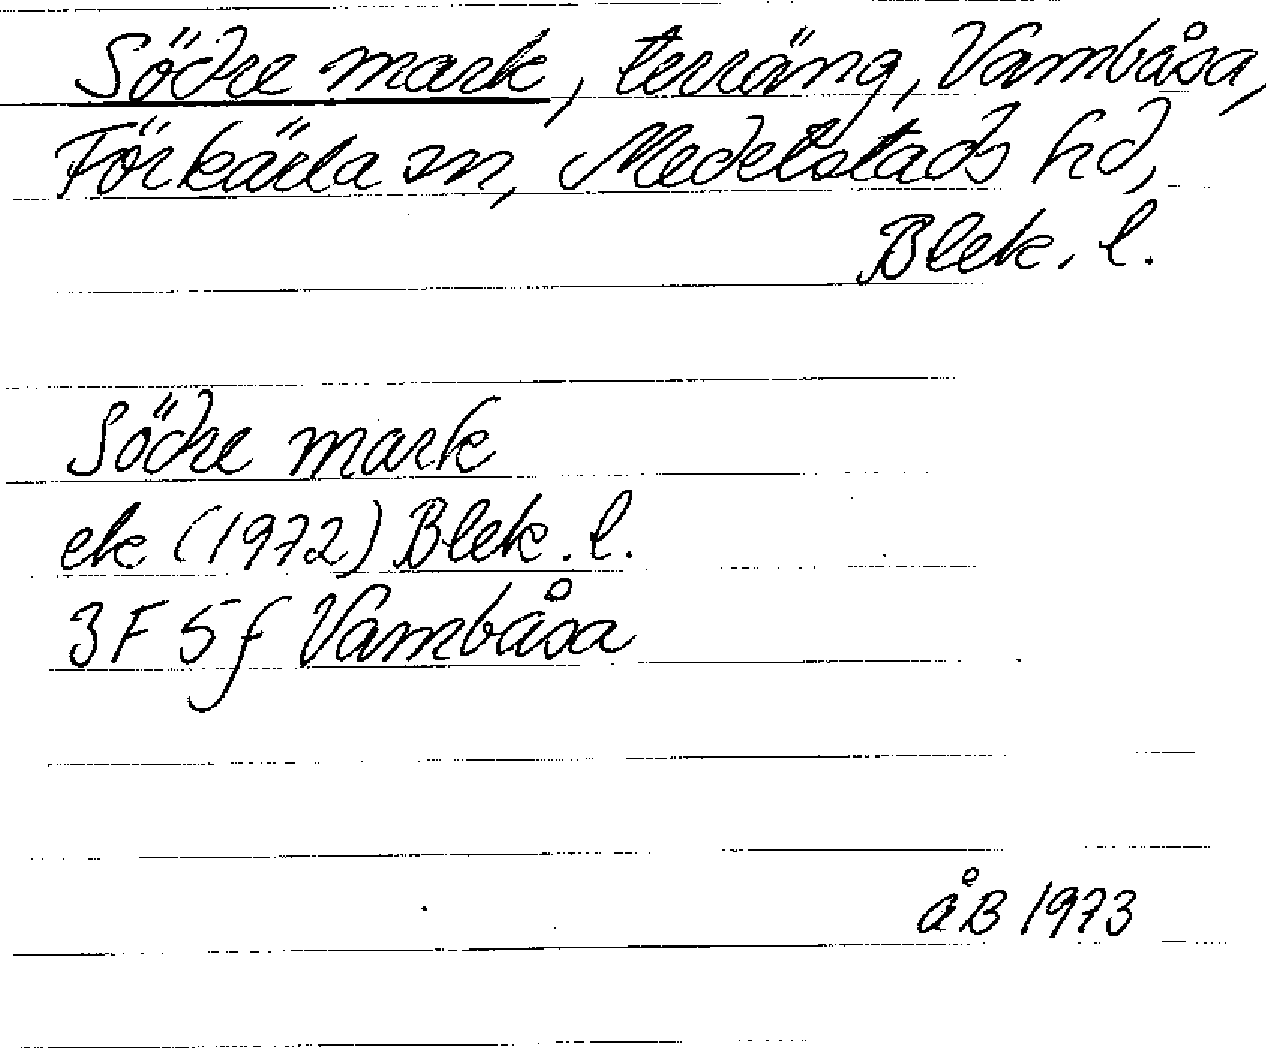 Södre mark, terräng, Vambåsa,
Förkärla sn, Medelstads hd,
Blek. l.
Södre mark
ek (1972) Blek. l.
3F 5f Vambåsa
åB 1973